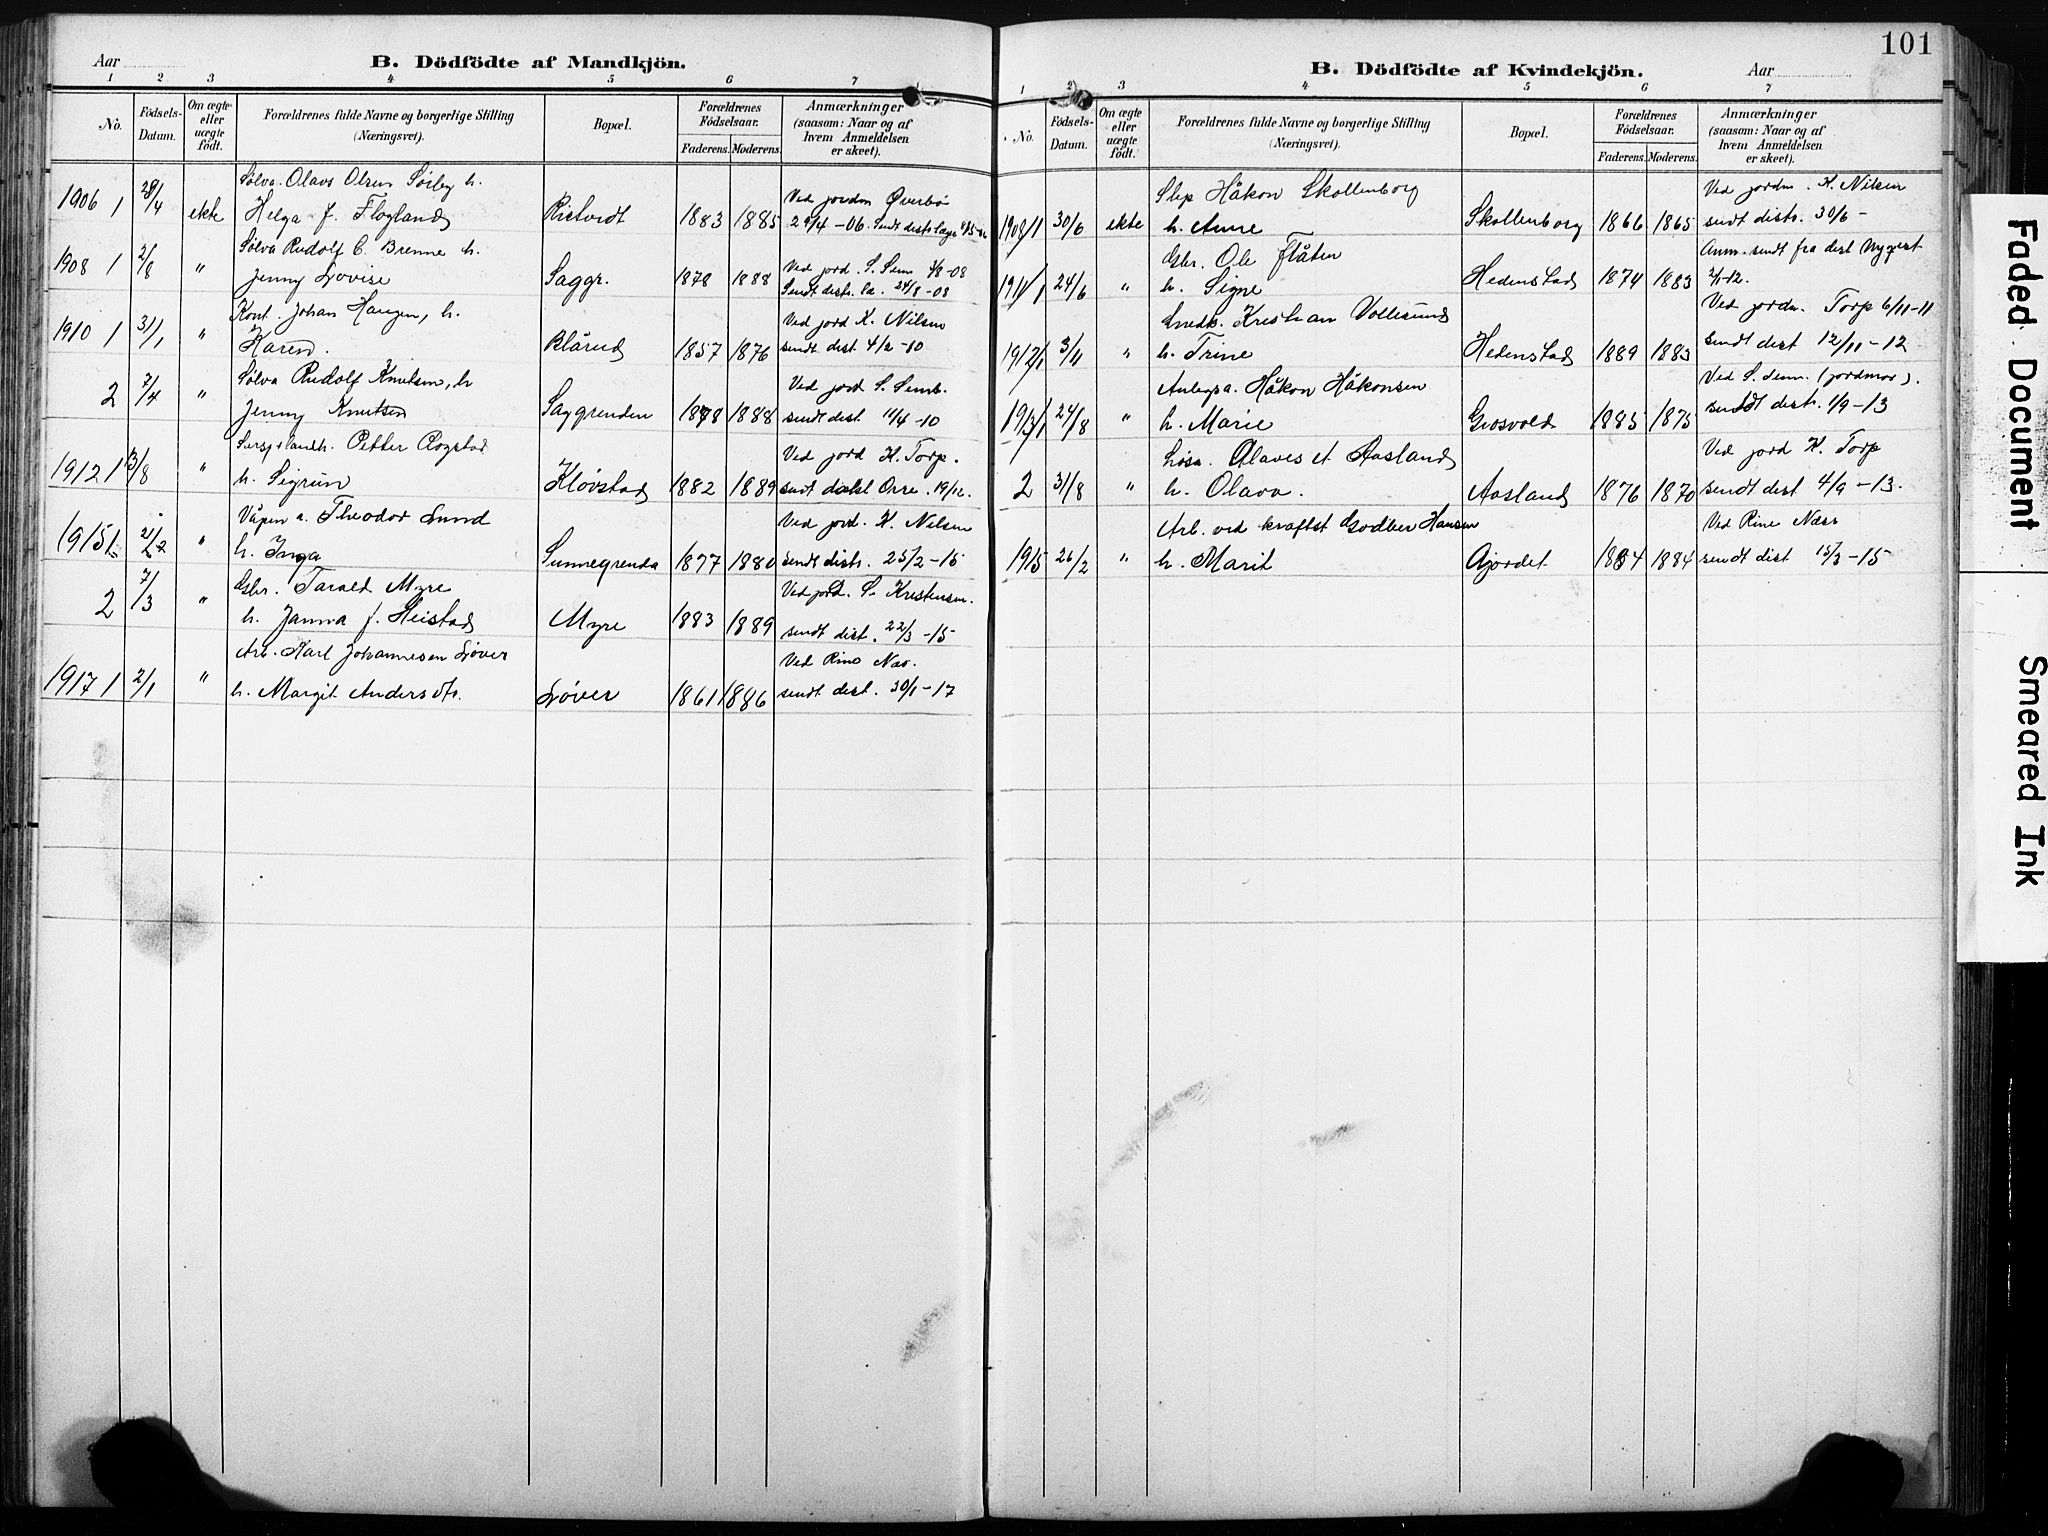 Aar
B. Dödfödte af Mandkjön.
1 2 3 4 5 6 7
No. Födsels-Datum. Om ægte eller uægte födt. Forældrenes fulde Navne og borgerlige Stilling (Næringsvei). Bopæl. Forældrenes Födselsaar. Faderens. Moderens. Anmærkninger (saasom: Naar og af hvem Anmeldelsen er skeet).
Sølva. Olavs Olsen h. Ved jordm Øverbø
1906 1 28/4 ekte Helga f. Flogland 1883 1885 29/4 -06. Sendt distr.læge
Sølva Rudolf C. Brenne h.
1908 1 2/8 " Jenny Lovise Saggr. 1878 1888 Ved jord. S. Sem 3/8-08
Sendt distr. la. 24/8-08
Kont. Johan Hansen, h. Ved jord K. Nilsen
1910 1 31/1 " Karen. Blårud 1857 1876 sendt dist 4/2-10
Sølva Rudolf Knutsen, h Ved jord S. Semb.
2 7/4 " Jenny Knutsen Saggrenden 1878 1888 sendt dist 11/4-10
Petter Rogstad Ved jord K. Torp.
1912 1 3/8 " h. Sigrun Kløvstad 1882 1889 sendt Orre. 19/12.
Våpen a. Theodor Lund Ved jord. K. Nilsen
1915 1 2/2 " h. Inga Sunnegrenda 1877 1880 sendt distr. 25/2-15
Gbr. Tarald Myre Ved jord. S. Kristensen.
2 7/3 " h. Janna f. Heistad Myre 1883 1889 sendt dist. 22/3-15
Arb. Karl Johannesen Løver Ved Rine Næs.
1917 1 2/1 " h. Margit Andersdtr. Løver 1861 1886 sendt dist. 30/1-17
101
B. Dödfödte af Kvindekjön.
Aar
1 2 3 4 5 6 7
No. Födsels-Datum. Om ægte eller uægte födt. Forældrenes fulde Navne og borgerlige Stilling (Næringsvei). Bopæl. Forældrenes Födselsaar. Faderens. Moderens. Anmærkninger (saasom: Naar og af hvem Anmeldelsen er skeet).
Håkon Skollenborg Ved jordm. K. Nilsen
1908 1 30/6 ekte h. Anne Skollenborg 1866 1865 sendt distr. 30/6-
Gbr. Ole Flåten Anm. sendt fra dist
1911 1 24/6 " h. Signe Hedenstad 1874 1883 2/1-12.
Snedk. Kristian Vollesund Ved jordm. Torp 6/11-11
1912 1 3/11 " h. Trine Hedenstad 1889 1883 sendt dist 12/11-12
Anlegsa. Håkon Håkonsen Ved S. Sem. (jordmor).
1913 1 24/8 " h. Marie Grosvold 1885 1875 sendt distr. 1/9-13
Olaves A Aasland Ved jord K. Torp
2 31/8 " h. Olava. Aasland 1876 1870 sendt dist 4/9-13.
Arb. ved kraftst Godber Hansen Ved Rine Næss
1915 26/2 " h. Marit Gjordet 1884 1884 sendt dist 15/3-15
Faded Document
Smeared Ink